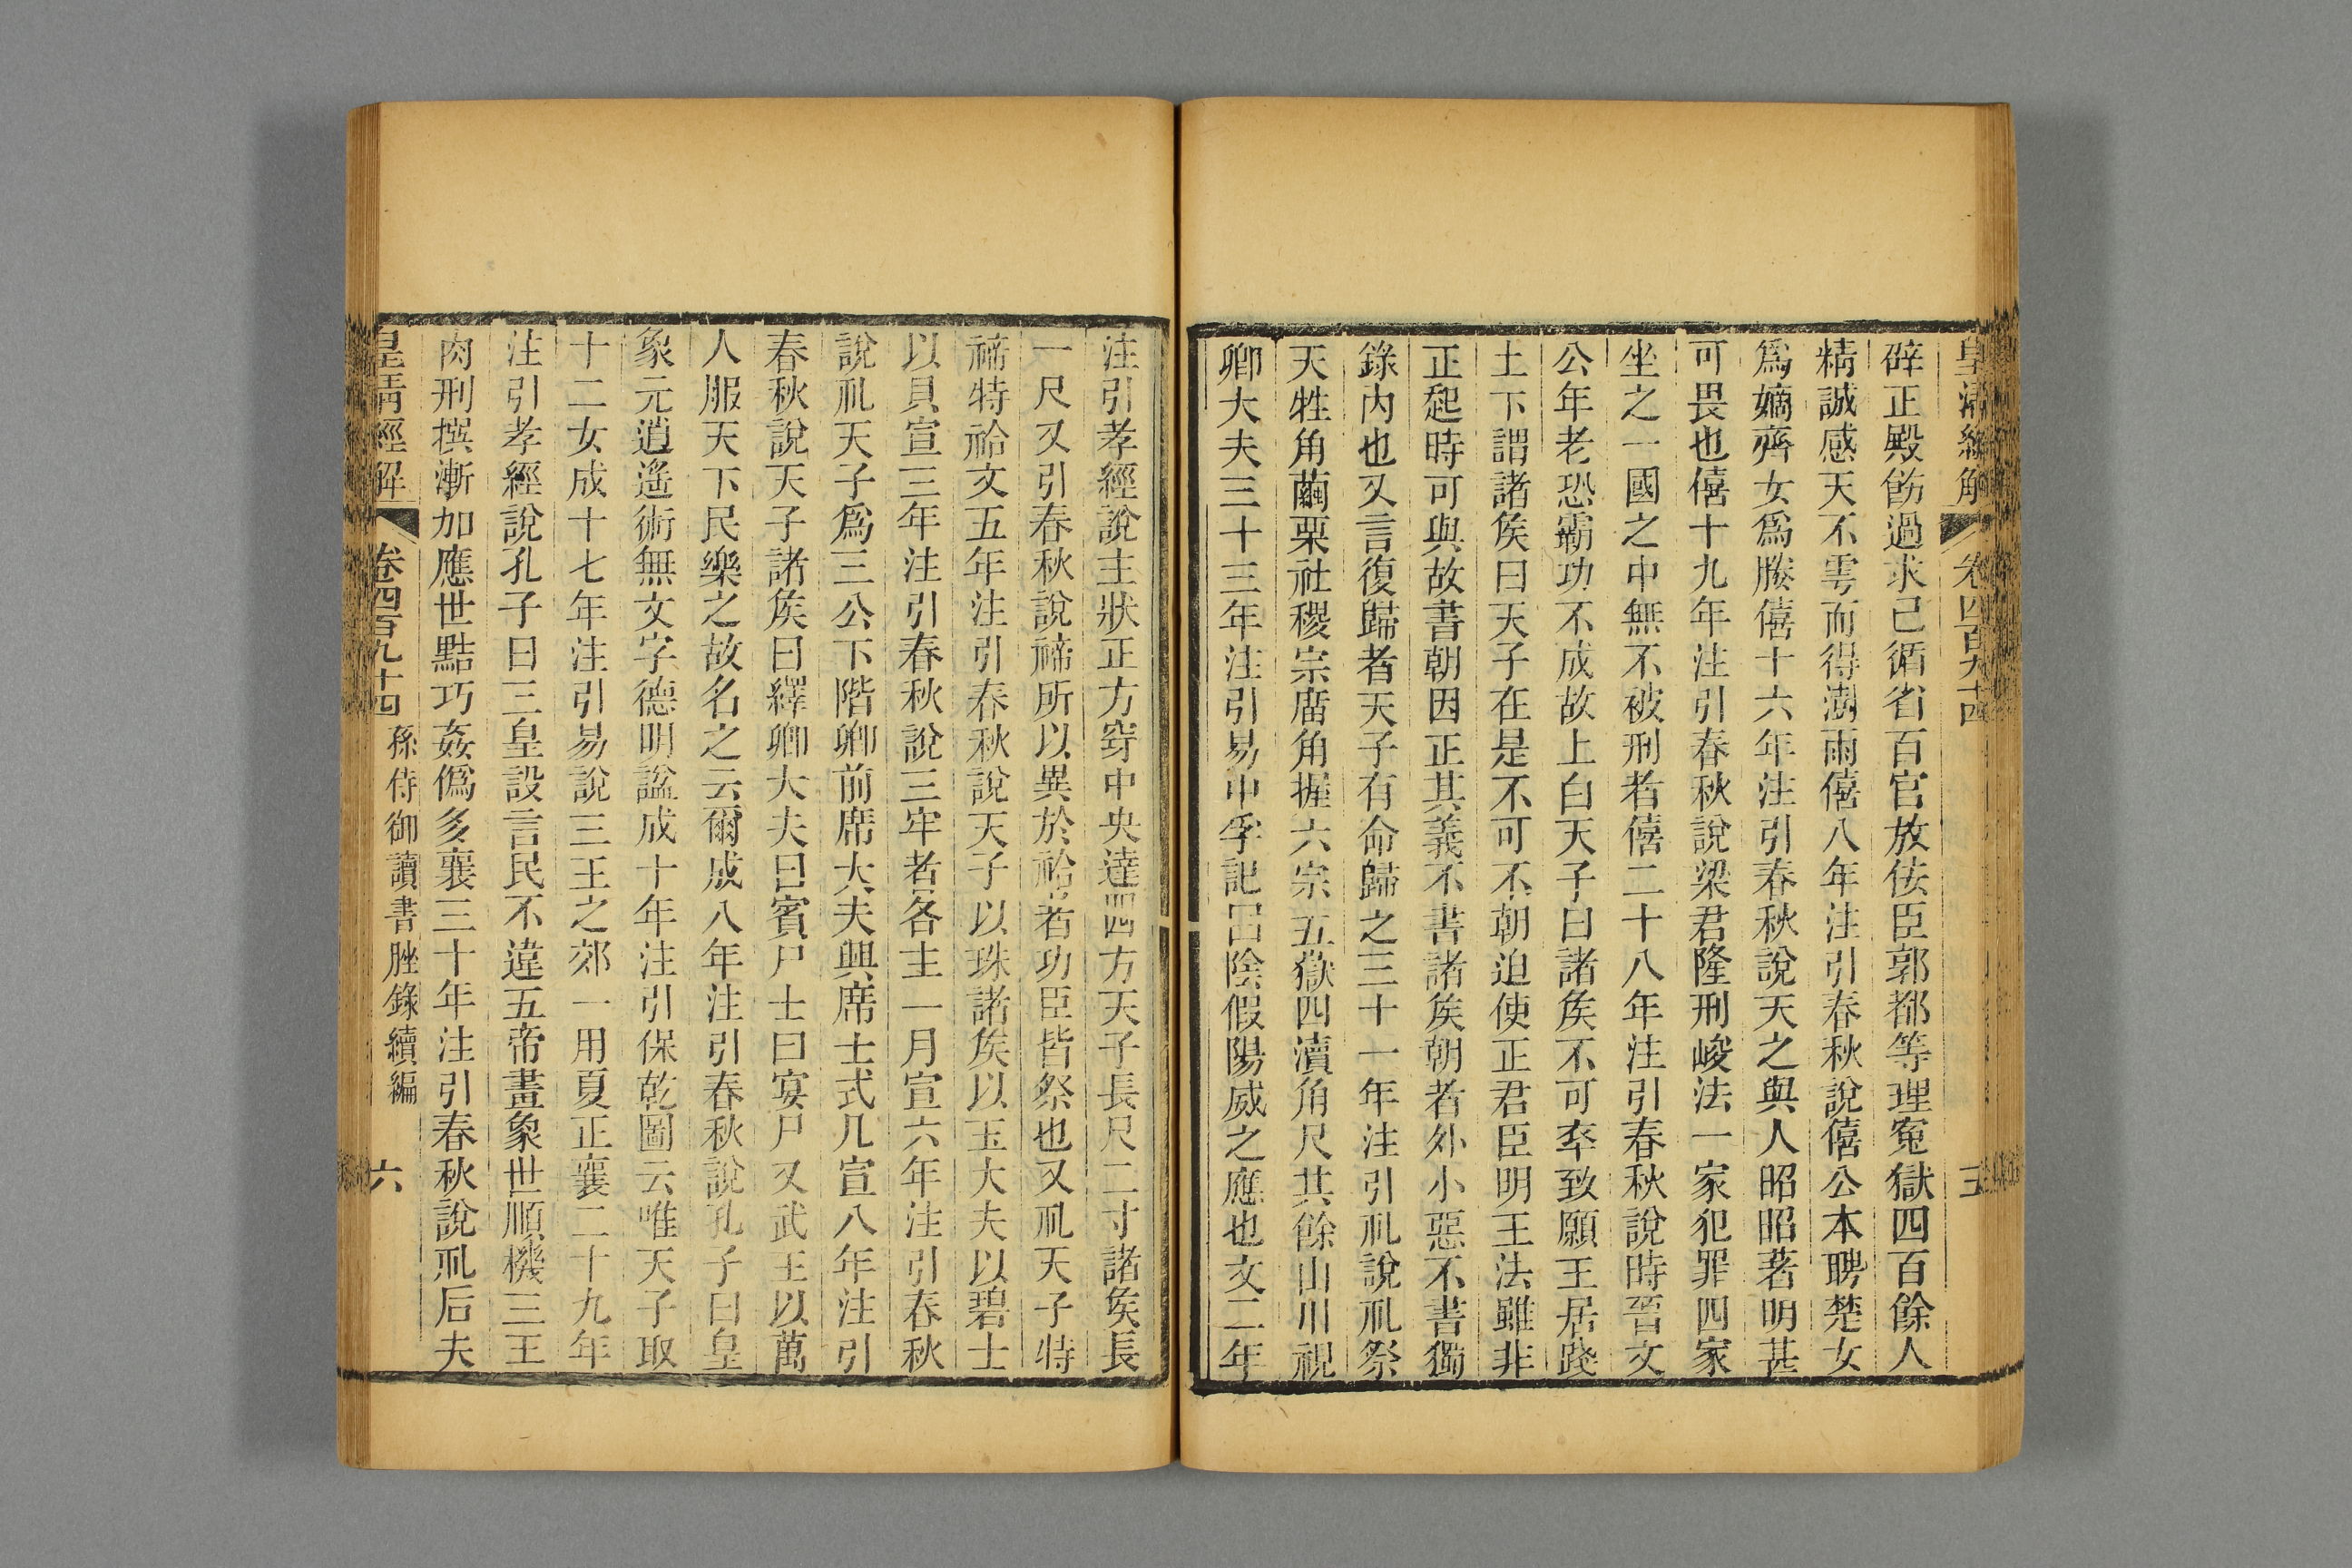 皇清經解 卷四百九十四 五
辟正殿飭過求己循省百官放佞臣郭都等理寃獄四百餘人
精誠感天不雩而得澍雨僖八年注引春秋說僖公本聘楚女
爲嫡齊女爲媵僖十六年注引春秋說天之與人昭昭著明甚
可畏也僖十九年注引春秋說梁君隆刑峻法一家犯罪四家
坐之一國之中無不被刑者僖二十八年注引春秋說時晉文
公年老恐霸功不成故上白天子曰諸矦不可卒致願王居踐
土下謂諸矦曰天子在是不可不朝迫使正君臣明王法雖非
正起時可與故書朝因正其義不書諸矦朝者外小惡不書獨
錄內也又言復歸者天子有命歸之三十一年注引禮說禮祭
天牲角繭栗社稷宗廟角握六宗五嶽四瀆角尺其餘山川視
卿大夫三十三年注引易中孚記曰陰假陽威之應也文二年
注引孝經說主狀正方穿中央達四方天子長尺二寸諸矦長
一尺又引春秋說禘所以異於祫者功臣皆祭也又禮天子特
禘特祫文五年注引春秋說天子以珠諸矦以玉大夫以碧士
以貝宣三年注引春秋說三牢者各主一月宣六年注引春秋
說禮天子爲三公下階卿前席大夫興席士式几宣八年注引
春秋說天子諸矦曰繹卿大夫曰賓尸士曰宴尸又武王以萬
人服天下民樂之故名之云爾成八年注引春秋說孔子曰皇
象元逍遙術無文字德明謚成十年注引保乾圖云唯天子取
十二女成十七年注引易說三王之郊一用夏正襄二十九年
注引孝經說孔子曰三皇設言民不違五帝畫象世順機三王
肉刑揆漸加應世黠巧姦僞多襄三十年注引春秋說禮后夫
皇清經解 卷四百九十四 孫侍御讀書脞錄續編 六